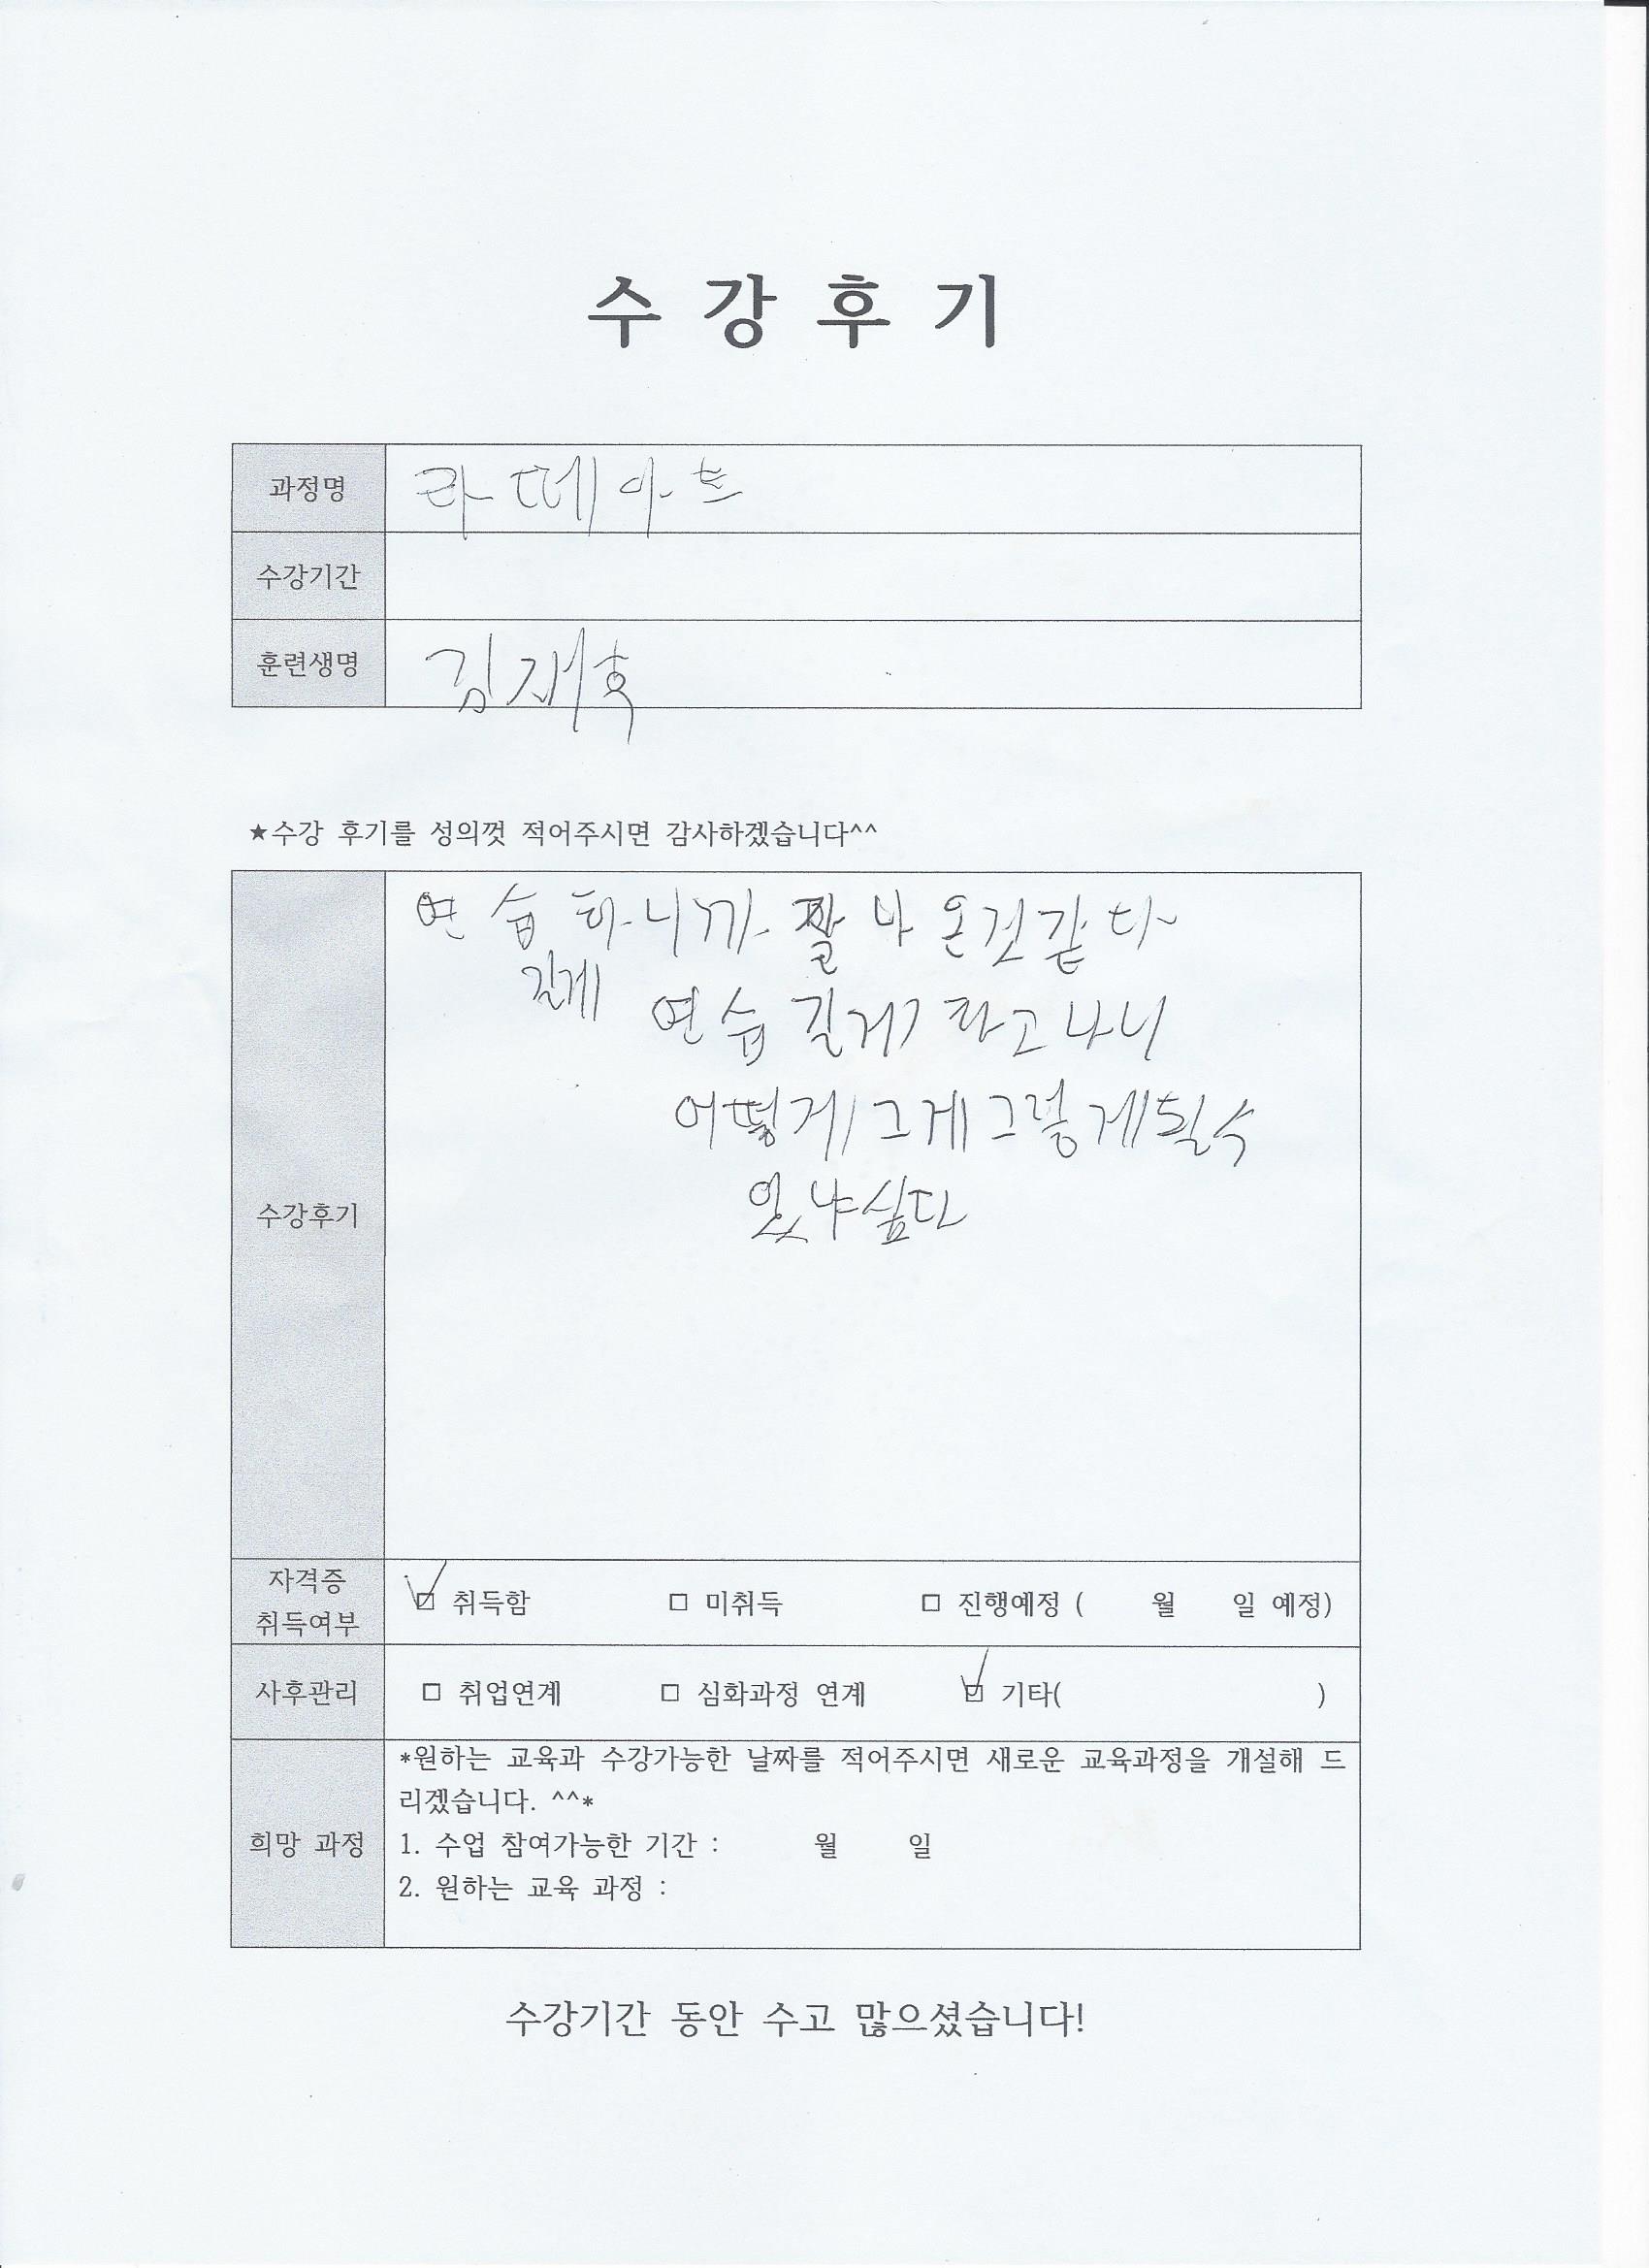 수 강 후 기
과정명 라떼아트
수강기간
훈련생명 김재혁
★수강 후기를 성의껏 적어주시면 감사하겠습니다^^
수강후기
연습 하니까 잘 나온것같다
길게 연습 길게 하고나니
어떻게 그게 그렇게될수
있냐싶다
자격증 취득여부 ☑ 취득함 □ 미취득 □ 진행예정 ( 월 일 예정)
사후관리 □ 취업연계 □ 심화과정 연계 ☑ 기타( )
희망 과정
*원하는 교육과 수강가능한 날짜를 적어주시면 새로운 교육과정을 개설해 드
리겠습니다. ^^*
1. 수업 참여가능한 기간 : 월 일
2. 원하는 교육 과정 :
수강기간 동안 수고 많으셨습니다!